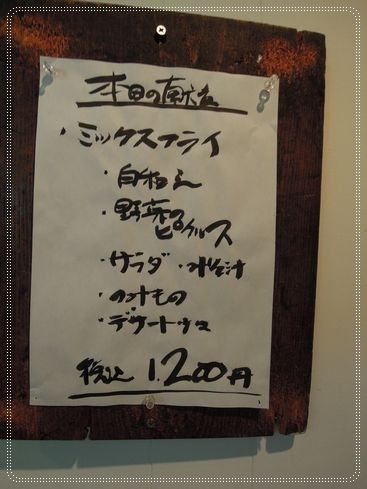 本日の献立
・ミックスフライ
・白和え
・野菜ピクルス
・サラダ ・味噌汁
・つけもの
・デザート
税込 1.200円